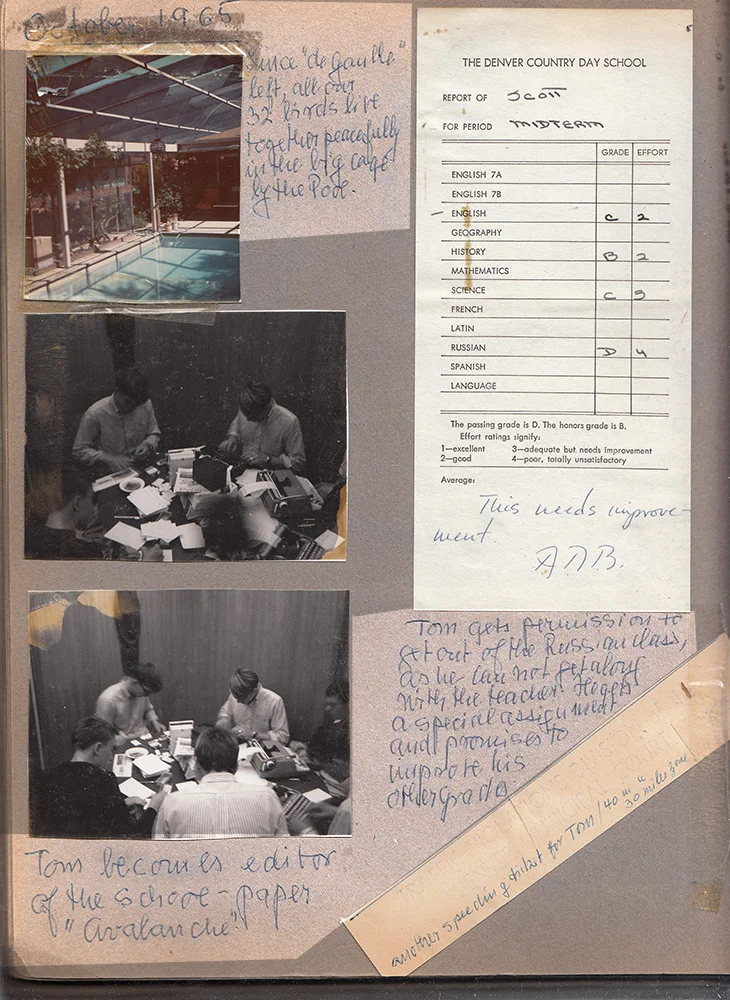 October 1965
Since "de Gaulle"
left, all our
32 birds live
together peacefully
in the big cage
by the Pool.
THE DENVER COUNTRY DAY SCHOOL
REPORT OF SCOTT
FOR PERIOD MIDTERM
GRADE EFFORT
ENGLISH 7A
ENGLISH 7B
ENGLISH C 2
GEOGRAPHY
HISTORY B 2
MATHEMATICS
SCIENCE C 3
FRENCH
LATIN
RUSSIAN D 4
SPANISH
LANGUAGE
The passing grade is D. The honors grade is B.
Effort ratings signify:
1—excellent 3—adequate but needs improvement
2—good 4—poor, totally unsatisfactory
Average:
This needs improve-
ment.
Tom gets permission to
get out of the Russian class,
as he can not get along
with the teacher.
a special assignment
and promises to
improve his
other grades
another speeding ticket for Tom / 40 m in 30 mile zone
Tom becomes editor
of the school-paper
"Avalanche".